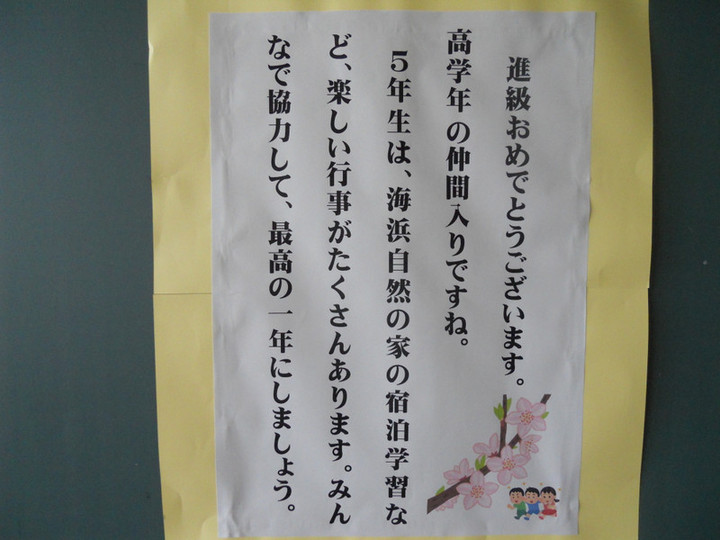 進級おめでとうございます。
高学年の仲間入りですね。
５年生は、海浜自然の家の宿泊学習な
ど、楽しい行事がたくさんあります。みん
なで協力して、最高の一年にしましょう。